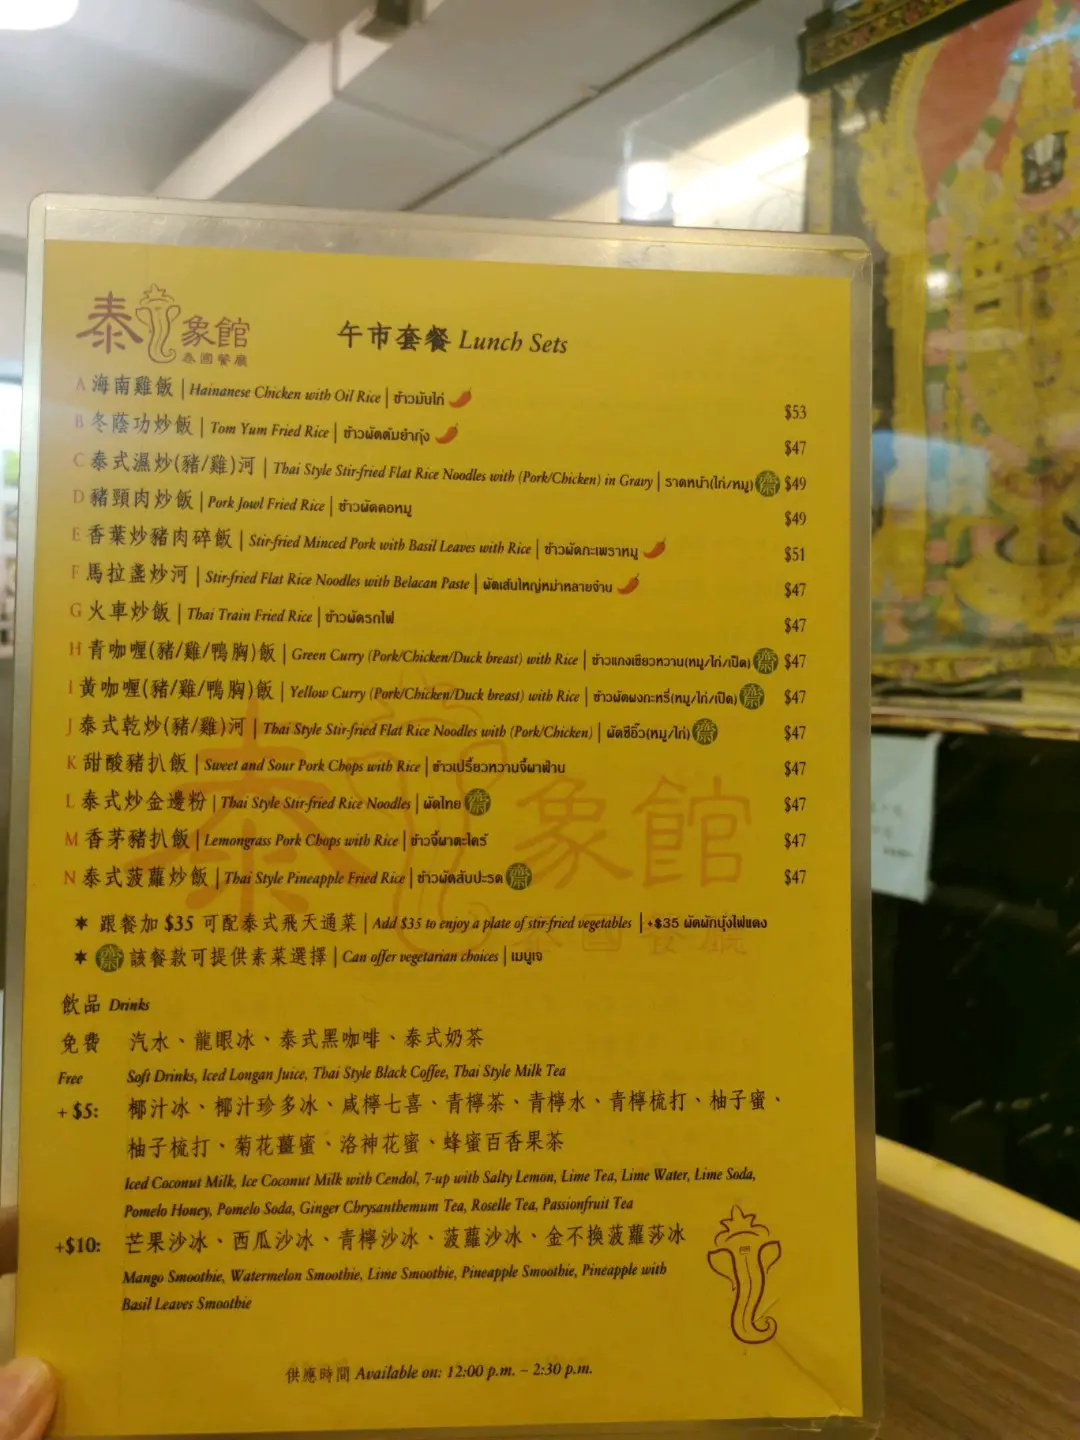 泰象館
泰國餐廳
午市套餐 Lunch Sets
A 海南雞飯 | Hainanese Chicken with Oil Rice | ข้าวมันไก่ $53
B 冬蔭功炒飯 | Tom Yum Fried Rice | ข้าวผัดต้มยำกุ้ง $47
C 泰式濕炒(豬/雞)河 | Thai Style Stir-fried Flat Rice Noodles with (Pork/Chicken) in Gravy | ราดหน้า(ไก่/หมู) 齋 $49
D 豬頸肉炒飯 | Pork Jowl Fried Rice | ข้าวผัดคอหมู $49
E 香葉炒豬肉碎飯 | Stir-fried Minced Pork with Basil Leaves with Rice | ข้าวผัดกะเพราหมู $51
F 馬拉盞炒河 | Stir-fried Flat Rice Noodles with Belacan Paste | ผัดเส้นใหญ่หม่าหลายจ่าน $47
G 火車炒飯 | Thai Train Fried Rice | ข้าวผัดรถไฟ $47
H 青咖喱(豬/雞/鴨胸)飯 | Green Curry (Pork/Chicken/Duck breast) with Rice | ข้าวแกงเขียวหวาน(หมู/ไก่/เป็ด) 齋 $47
I 黃咖喱(豬/雞/鴨胸)飯 | Yellow Curry (Pork/Chicken/Duck breast) with Rice | ข้าวผัดผงกะหรี่(หมู/ไก่/เป็ด) 齋 $47
J 泰式乾炒(豬/雞)河 | Thai Style Stir-fried Flat Rice Noodles with (Pork/Chicken) | ผัดซีอิ๊ว(หมู/ไก่) 齋 $47
K 甜酸豬扒飯 | Sweet and Sour Pork Chops with Rice | ข้าวเปรี้ยวหวานจี๊ผาฟ่าน $47
L 泰式炒金邊粉 | Thai Style Stir-fried Rice Noodles | ผัดไทย 齋 $47
M 香茅豬扒飯 | Lemongrass Pork Chops with Rice | ข้าวจี๊ผาตะไคร้ $47
N 泰式菠蘿炒飯 | Thai Style Pineapple Fried Rice | ข้าวผัดสับปะรด 齋 $47
✶ 跟餐加 $35 可配泰式飛天通菜 | Add $35 to enjoy a plate of stir-fried vegetables | +$35 ผัดผักบุ้งไฟแดง
✶ 齋 該餐款可提供素菜選擇 | Can offer vegetarian choices | เมนูเจ
飲品 Drinks
免費 汽水、龍眼冰、泰式黑咖啡、泰式奶茶
Free Soft Drinks, Iced Longan Juice, Thai Style Black Coffee, Thai Style Milk Tea
+ $5: 椰汁冰、椰汁珍多冰、咸檸七喜、青檸茶、青檸水、青檸梳打、柚子蜜、
柚子梳打、菊花薑蜜、洛神花蜜、蜂蜜百香果茶
Iced Coconut Milk, Ice Coconut Milk with Cendol, 7-up with Salty Lemon, Lime Tea, Lime Water, Lime Soda,
Pomelo Honey, Pomelo Soda, Ginger Chrysanthemum Tea, Roselle Tea, Passionfruit Tea
+$10: 芒果沙冰、西瓜沙冰、青檸沙冰、菠蘿沙冰、金不換菠蘿莎冰
Mango Smoothie, Watermelon Smoothie, Lime Smoothie, Pineapple Smoothie, Pineapple with
Basil Leaves Smoothie
供應時間 Available on: 12:00 p.m. – 2:30 p.m.